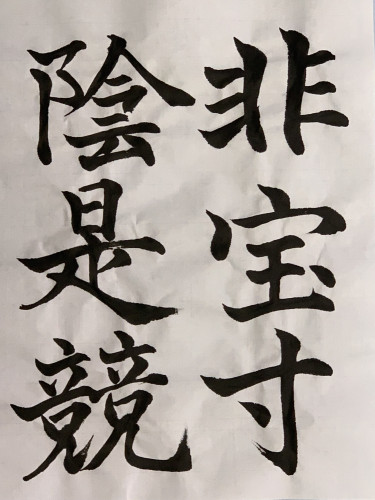 非宝寸
陰是競